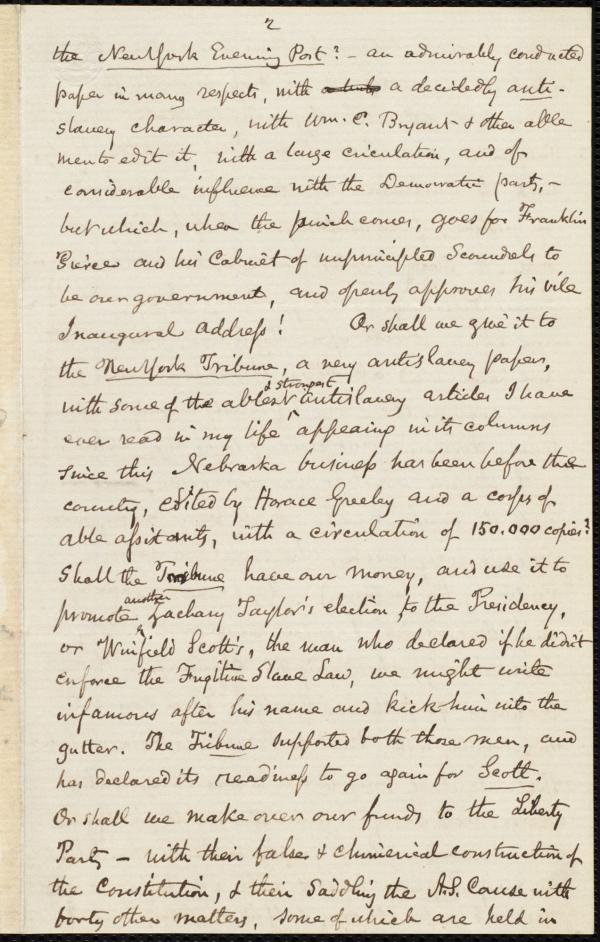 2
the New York Evening Post? - an admirably conducted
paper in many respects, with a decidedly anti-
slavery character, with Wm. C. Bryant & other able
men to edit it, with a large circulation, and of
considerable influence with the Democratic party, -
but which, when the pinch comes, goes for Franklin
Pierce and his Cabinet of unprincipled Scoundrels to
be our government, and openly approves his vile
Inaugural Address! Or shall we give it to
the New York Tribune, a very antislavery paper,
with some of the ablest & strongest antislavery articles I have
ever read in my life appearing in its columns
since this Nebraska business has been before the
country, edited by Horace Greeley and a corps of
able assistants, with a circulation of 150.000 copies?
Shall the Tribune have our money, and use it to
promote another Zachary Taylor's election to the Presidency,
or Winfield Scott's, the man who declared if he didn't
enforce the Fugitive Slave Law, we might write
infamous after his name and kick him into the
gutter. The Tribune supported both those men, and
has declared its readiness to go again for Scott.
Or shall we make over our funds to the Liberty
Party - with their false & chimerical construction of
the Constitution, & their Saddling the A.S. Cause with
forty other matters, some of which are held in